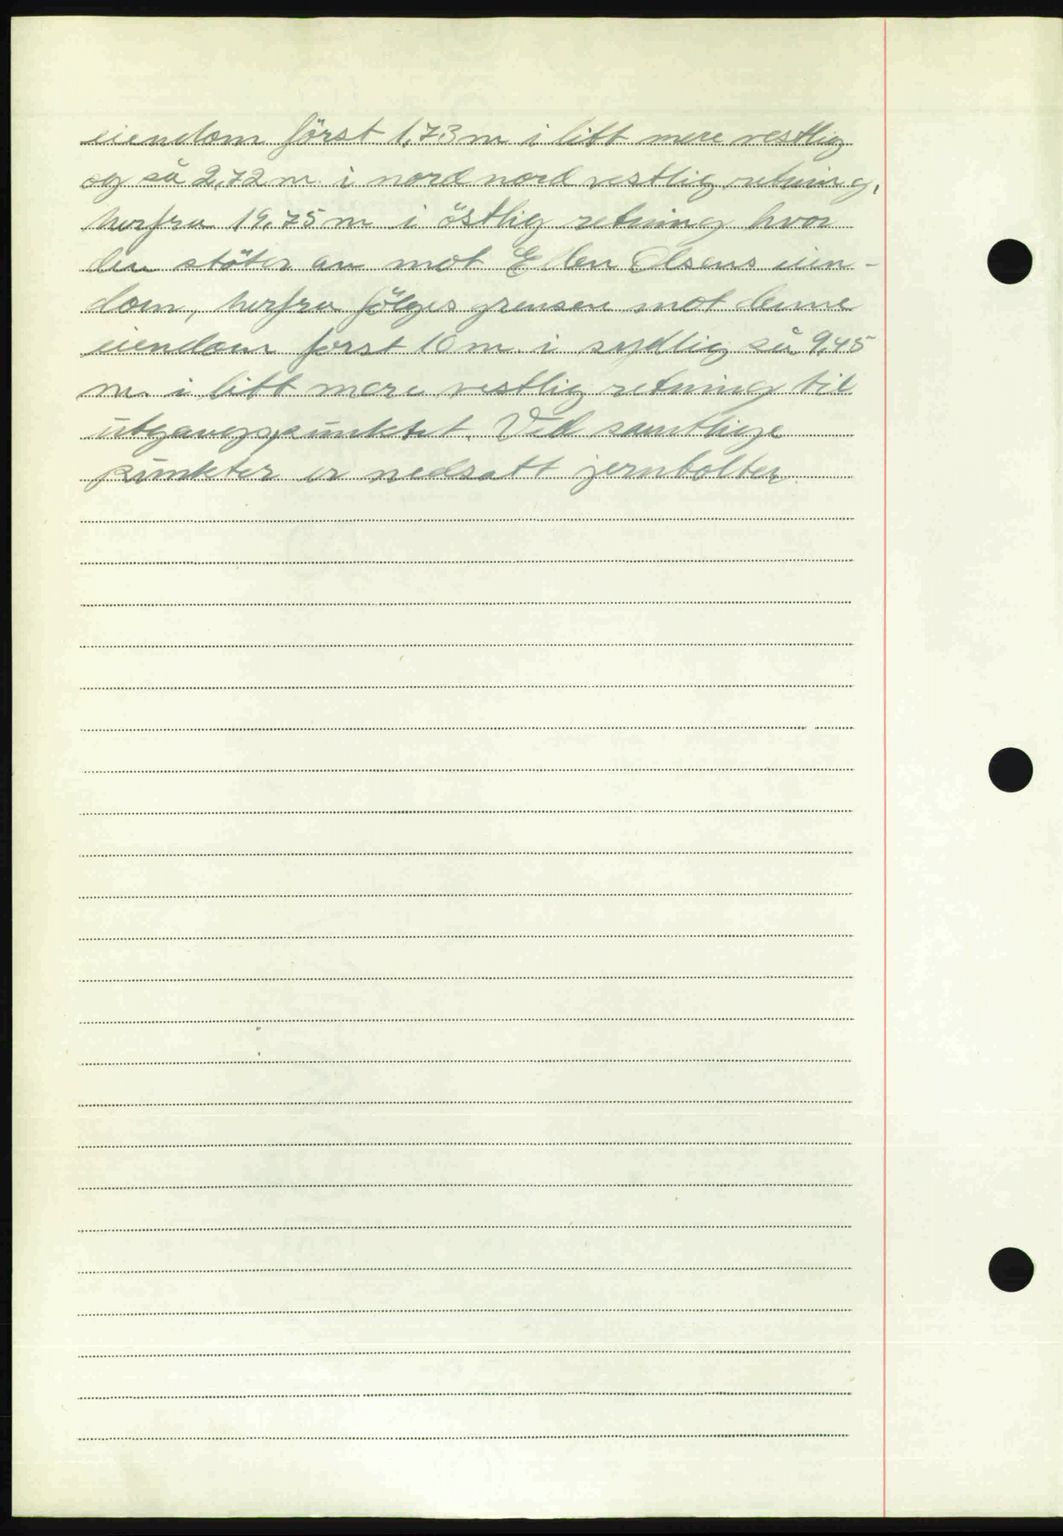 eiendom först 1,73 m i litt mere vestlig
og så 2,72 m. i nord nord vestlig retning,
herfra 19,75 m i östlig retning hvor
den stöter an mot Ellen Olsens eien-
dom, herfra fölges grensen mot denne
eiendom först 10 m. i sydlig så 9,45
m. i litt mere vestlig retning til
utgangspunktet. Ved samtlige
punkter er nedsatt jernbolter.